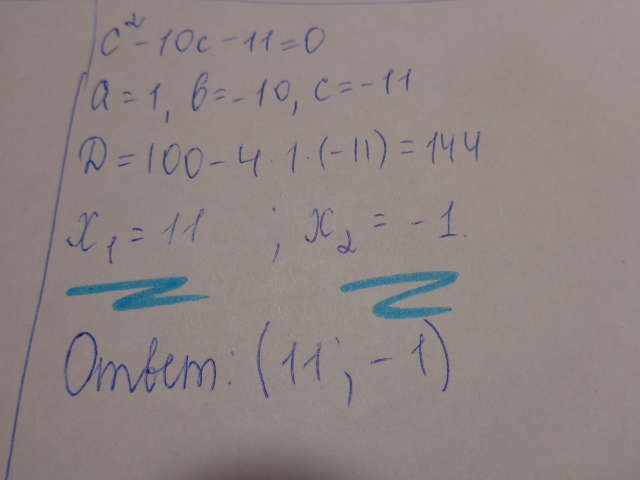 c² - 10c - 11 = 0
a = 1, в = -10, c = -11
D = 100 - 4 · 1 · (-11) = 144
x₁ = 11 ; x₂ = -1.
Ответ: (11 ; -1)